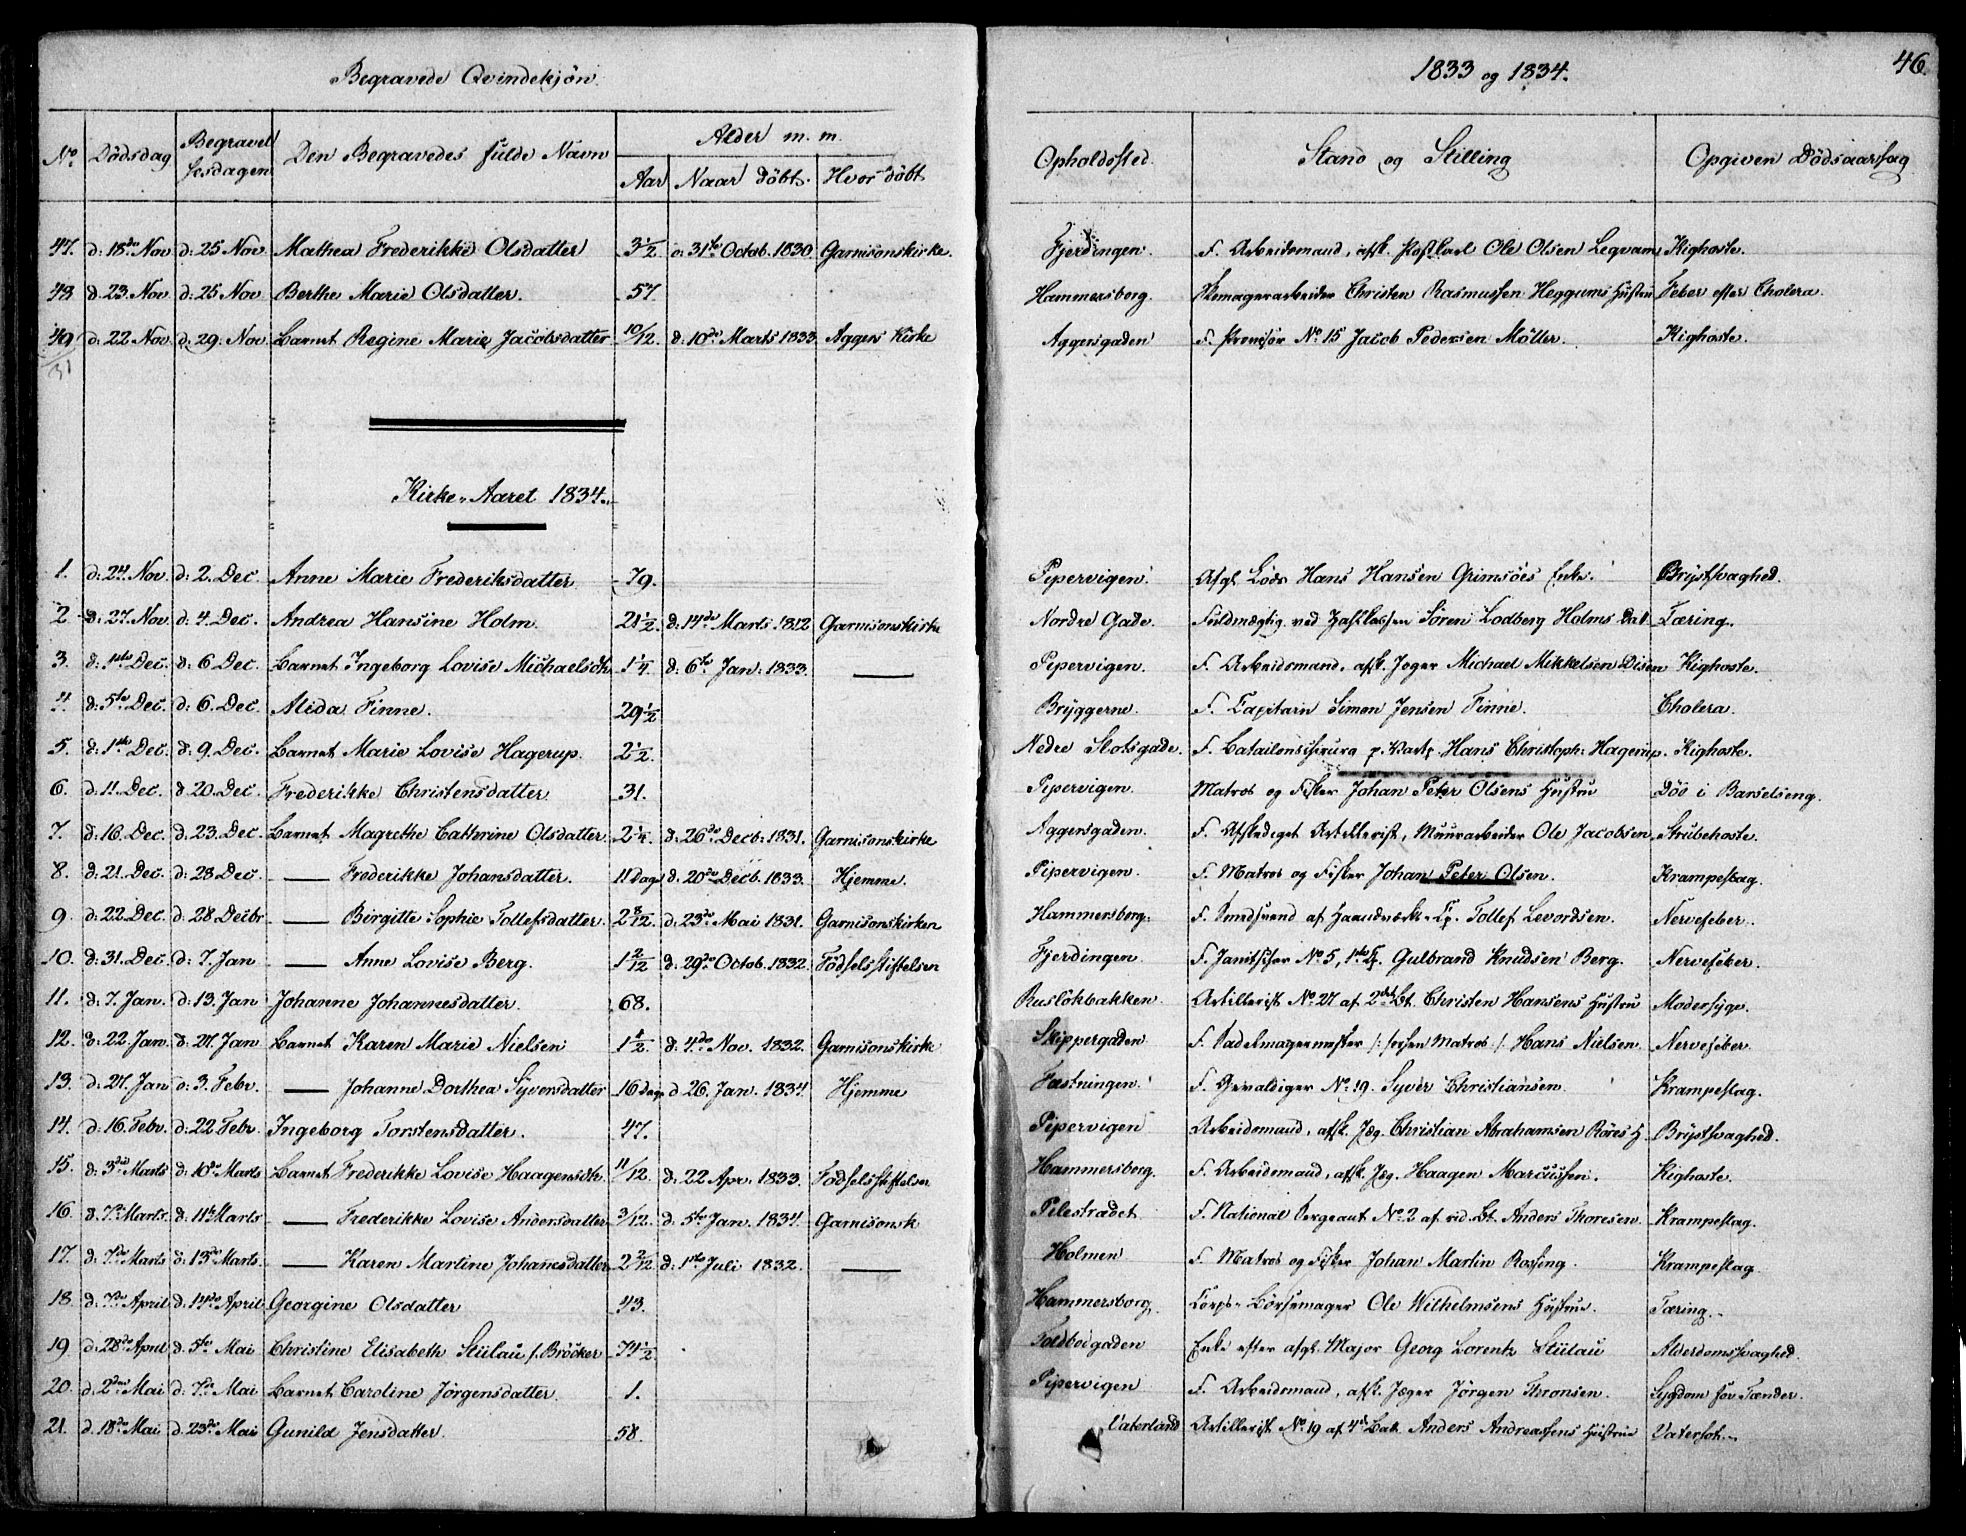 Begravede Qvindekjön.
1833 og 1834.
46.
No Dödsdag Begravelsesdagen Den Begravedes fulde Navn Alder m. m. Aar Naar döbt. Hvor döbt Opholdssted. Stand og Stilling Opgiven Dödsaarsag
47. d: 18de Nov d: 25 Nov Mathea Frederikke Olsdatter 3 1/2 d: 31te Octob. 1830. Garnisonskirke. Fjerdingen. F. Arbeidsmand, afsk. Postkarl Ole Olsen Leqvam Kighoste.
48 d. 23. Nov d: 25 Nov Berthe Marie Olsdatter. 57 Hammersborg. Skomagerarbeider Christen Rasmussen Heggums Hustru Feber efter Cholera.
49 d: 22 Nov d: 29. Nov Barnet Regine Marie Jacobsdatter 10/12. d: 10de Marts 1833 Aggers Kirke Aggersgaden F. No 15 Jacob Pedersen Möller. Kighoste.
31
Kirke-Aaret 1834.
1. d: 24. Nov. d: 2. Dec. Anne Marie Frederiksdatter 79. Pipervigen. Afgl. Lods Hans Hansen Grimsöes Enke. Brÿstsvaghed.
2 d: 27. Nov. d: 4. Dec. Andrea Hansine Holm 21 1/2. d: 14de Marts 1812 Garnisonskirke Nordre Gade. Fuldmægtig ved Sören Lodberg Holms Dat Tæring.
3. d: 1ste Dec. d: 6 Dec. Barnet Ingeborg Lovise Michaelsdtr 1 1/4. d: 6te Jan: 1833. — Pipervigen. F. Arbeidsmand, afsk. Jæger Michael Mikkelsen Disen Kighoste.
4 d: 5te Dec. d: 6. Dec. Alida Finne. 29 1/2 Brÿggerne. F. Capitain Simon Jensen Finne. Cholera.
5. d: 1ste Dec. d: 9. Dec. Barnet Marie Lovise Hagerup. 2 1/2. Nedre Slotsgade. F. Batailonschirurg Hans Christoph: Hagerup. Kighoste.
6. d. 11. Dec. d 20. Dec. Frederikke Christensdatter 31. Pipervigen. Matros og Fisker Johan Peter Olsens Hustru Död i Barselseng.
7. d: 16. Dec. d: 23. Dec. Barnet Magrethe Cathrine Olsdatter 2 1/4. d: 26de Decb: 1831. Garnisonskirke Aggersgaden. F. Afskediget Artillerist, Muurarbeider Ole Jacobsen Strubehoste.
8. d. 21. Dec. d: 28 Dec. — Frederikke Johansdatter. 11 Dage d. 20de Decb. 1833. Hjemme. Pipervigen. F. Matros og Fisker Johan Peter Olsen. Krampeslag.
9. d: 22. Dec. d: 28. Decbr — Birgitte Sophie Tollefsdatter. 2 8/12. d: 23de Mai 1831. Garnisonskirken Hammersborg. F. Smedsvend af Haandværks-Cp. Tollef Levordsen. Nervefeber.
10. d: 31. Dec. d: 7. Jan — Anne Lovise Berg. 1 2/12 d: 29de Octob. 1832. Födselsstiftelsen Fjerdingen. F. Janitschar No 5, 1ste Cp. Gulbrand Knudsen Berg. Nervefeber.
11. d: 7. Jan. d: 13. Jan Johanne Johannesdatter. 68. Ruslökbakken. Artillerist No 27 af 2det Bt. Christen Hansens Hustru Modersyge.
12. d: 22 Jan. d: 27. Jan Barnet Karen Marie Nielsen 1 1/2. d: 4de Nov. 1832. Garnisonskirke Skippergaden F. Sadelmagermester /: forhen Matros / Hans Nielsen. Nervefeber.
13. d: 27. Jan d: 3. Febr. — Johanne Dorthea Syversdatter 16 Dage d 26. Jan. 1834. Hjemme Fæstningen. F. Gevaldiger No 19. Syver Christiansen. Krampeslag.
14. d: 16. Febr. d: 22 Febr. Ingeborg Torstensdatter. 47. Pipervigen Arbeidsmand, afsk. Jæg. Christian Abrahamsen Röres H Brÿstsvaghed.
15. d: 3die Marts d: 10de Marts Barnet Frederikke Lovise Haagensdtr. 11/12. d: 22 Apr. 1833. Födselsstiftelsen Hammersborg. F. Arbeidsmand, afsk. Jæg. Haagen Marcussen. Kighoste.
16. d. 7de Marts. d: 11te Marts — Frederikke Lovise Andersdatter 3/12. d. 5te Jan. 1834. Garnisonsk Pilestrædet F. National Sergeant No 2 af rid. Bt. Anders Thoresen. Krampeslag.
17. d. 7de Marts d: 13de Marts. — Karen Martine Johannesdatter 2 2/12 d: 1ste Juli 1832. — Holmen F. Matros og Fisker Johan Martin Rossing. Krampeslag
18. d. 7de April d. 14de April Georgine Olsdatter 43. Hammersborg. Corps-Börsemager Ole Wilhelmsens Hustrue. Tæring.-
19 d. 28de April d. 5te Mai Christine Elisabeth Stülau f. Bröcker 74 1/2. Toldbodgaden Enke efter afgl. Major Georg Lorentz Stülau Alderdomssvaghed.
20. d. 2den Mai d: 7de Mai Barnet Caroline Jörgensdatter. 1. Pipervigen F. Arbeidsmand, afsk. Jæger Jörgen Thronsen. Sygdom for Tænder.
21. d. 18de Mai d. 23de Mai Gunild Jensdatter. 58. Vaterland Artillerist No 19 af 4de Bat. Anders Andreassens Hustrue Vatersot.-